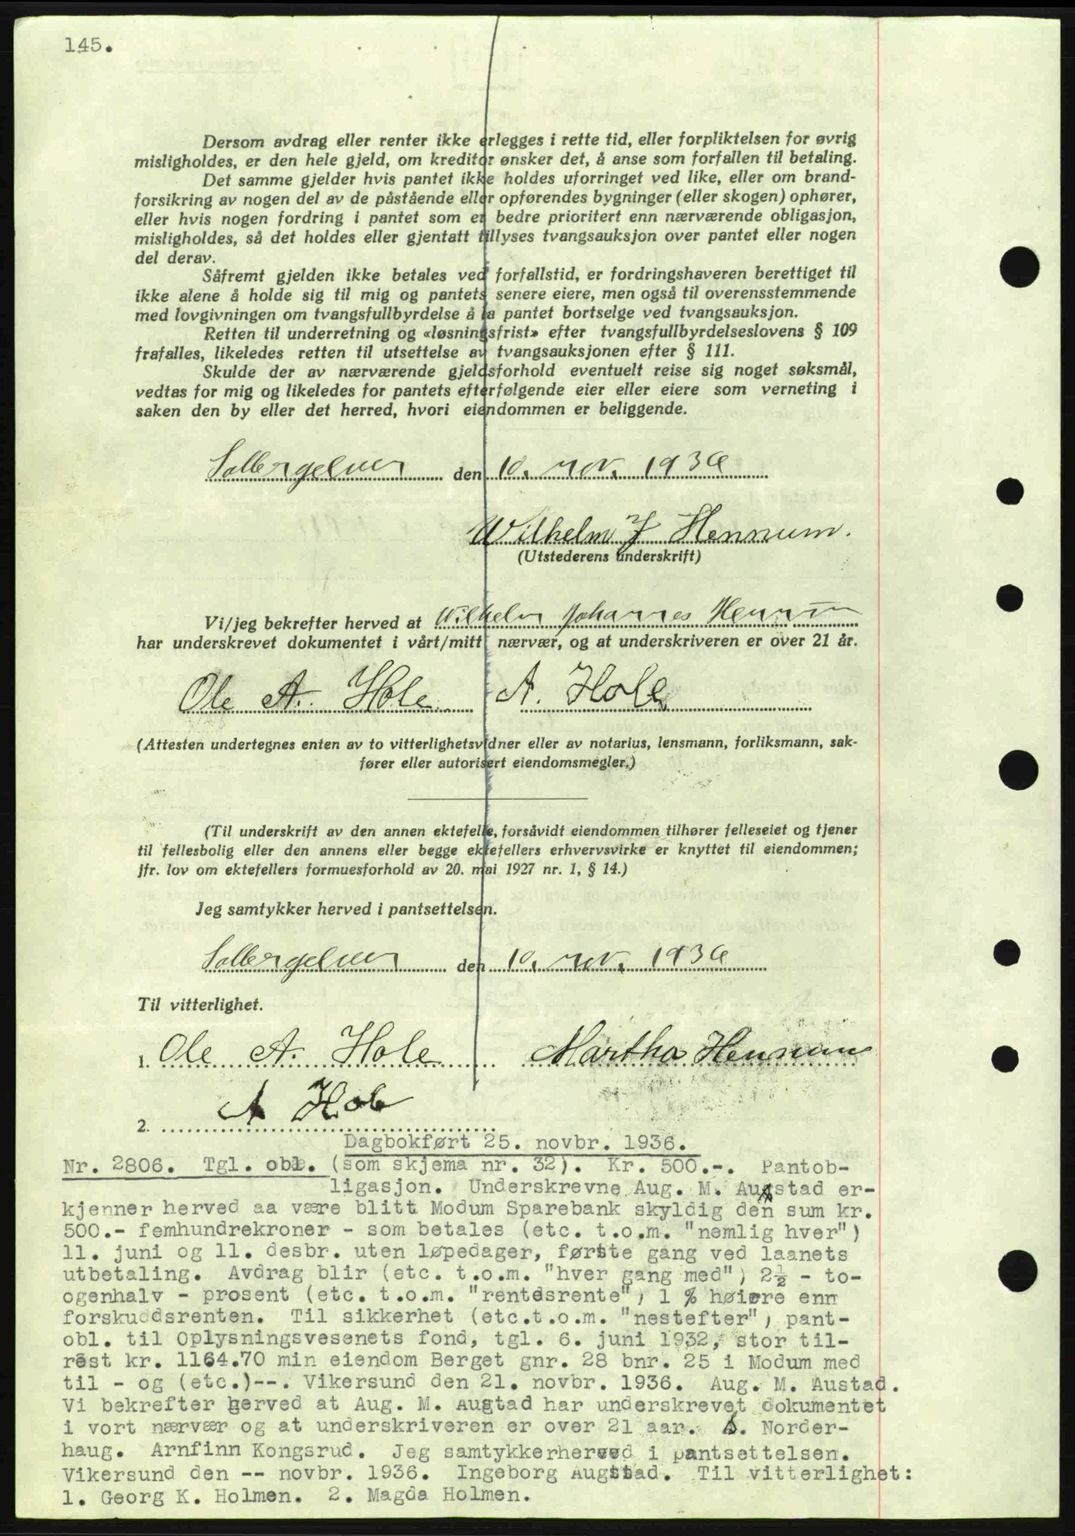 145.
Dersom avdrag eller renter ikke erlegges i rette tid, eller forpliktelsen for øvrig
misligholdes, er den hele gjeld, om kreditor ønsker det, å anse som forfallen til betaling.
Det samme gjelder hvis pantet ikke holdes uforringet ved like, eller om brand-
forsikring av nogen del av de påstående eller opførendes bygninger (eller skogen) ophører,
eller hvis nogen fordring i pantet som er bedre prioritert enn nærværende obligasjon,
misligholdes, så det holdes eller gjentatt tillyses tvangsauksjon over pantet eller nogen
del derav.
Såfremt gjelden ikke betales ved forfallstid, er fordringshaveren berettiget til
ikke alene å holde sig til mig og pantets senere eiere, men også til overensstemmende
med lovgivningen om tvangsfullbyrdelse å ta pantet bortselge ved tvangsauksjon.
Retten til underretning og «løsningsfrist» efter tvangsfullbyrdelseslovens § 109
frafalles, likeledes retten til utsettelse av tvangsauksjonen efter § 111.
Skulde der av nærværende gjeldsforhold eventuelt reise sig noget søksmål,
vedtas for mig og likeledes for pantets efterfølgende eier eller eiere som verneting i
saken den by eller det herred, hvori eiendommen er beliggende.
Solbergelven den 10. nov. 1936
Wilhelm J Hennum.
(Utstederens underskrift)
Vi/jeg bekrefter herved at Wilhelm Johannes Hennum
har underskrevet dokumentet i vårt/mitt nærvær, og at underskriveren er over 21 år.
Ole A. Hole A. Hole
(Attesten undertegnes enten av to vitterlighetsvidner eller av notarius, lensmann, forliksmann, sak-
fører eller autorisert eiendomsmegler.)
(Til underskrift av den annen ektefelle, forsåvidt eiendommen tilhører felleseiet og tjener
til fellesbolig eller den annens eller begge ektefellers erhvervsvirke er knyttet til eiendommen;
jfr. lov om ektefellers formuesforhold av 20. mai 1927 nr. 1, § 14.)
Jeg samtykker herved i pantsettelsen.
Solbergelven den 10. nov. 1936
Til vitterlighet.
1. Ole A. Hole Martha Hennum
2. A Hole
Dagbokført 25. novbr. 1936.
Nr. 2806. Tgl. obl. (som skjema nr. 32). Kr. 500.-. Pantob-
ligasjon. Underskrevne Aug. M. Augstad er-
kjenner herved aa være blitt Modum Sparebank skyldig den sum kr.
500.- femhundrekroner - som betales (etc. t.o.m. "nemlig hver")
11. juni og 11. desbr. uten løpedager, første gang ved laanets
utbetaling. Avdrag blir (etc. t.o.m. "hver gang med") 2½ - to-
ogenhalv - prosent (etc. t.o.m. "rentesrente") 1 % høiere enn
forskuddsrenten. Til sikkerhet (etc.t.o.m. "nestefter") pant-
obl. til Oplysningsvesenets fond, tgl. 6. juni 1932, stor til-
rest kr. 1164.70 min eiendom Berget gnr. 28 bnr. 25 i Modum med
til - og (etc.)--. Vikersund den 21. novbr. 1936. Aug. M. Austad.
Vi bekrefter herved at Aug. M. Augtad har underskrevet dokumentet
i vort nærvær og at underskriveren er over 21 aar. A. Norder-
haug. Arnfinn Kongsrud. Jeg samtykkerherved i pantsettelsen.
Vikersund den -- novbr. 1936. Ingeborg Augstad. Til vitterlighet:
1. Georg K. Holmen. 2. Magda Holmen.